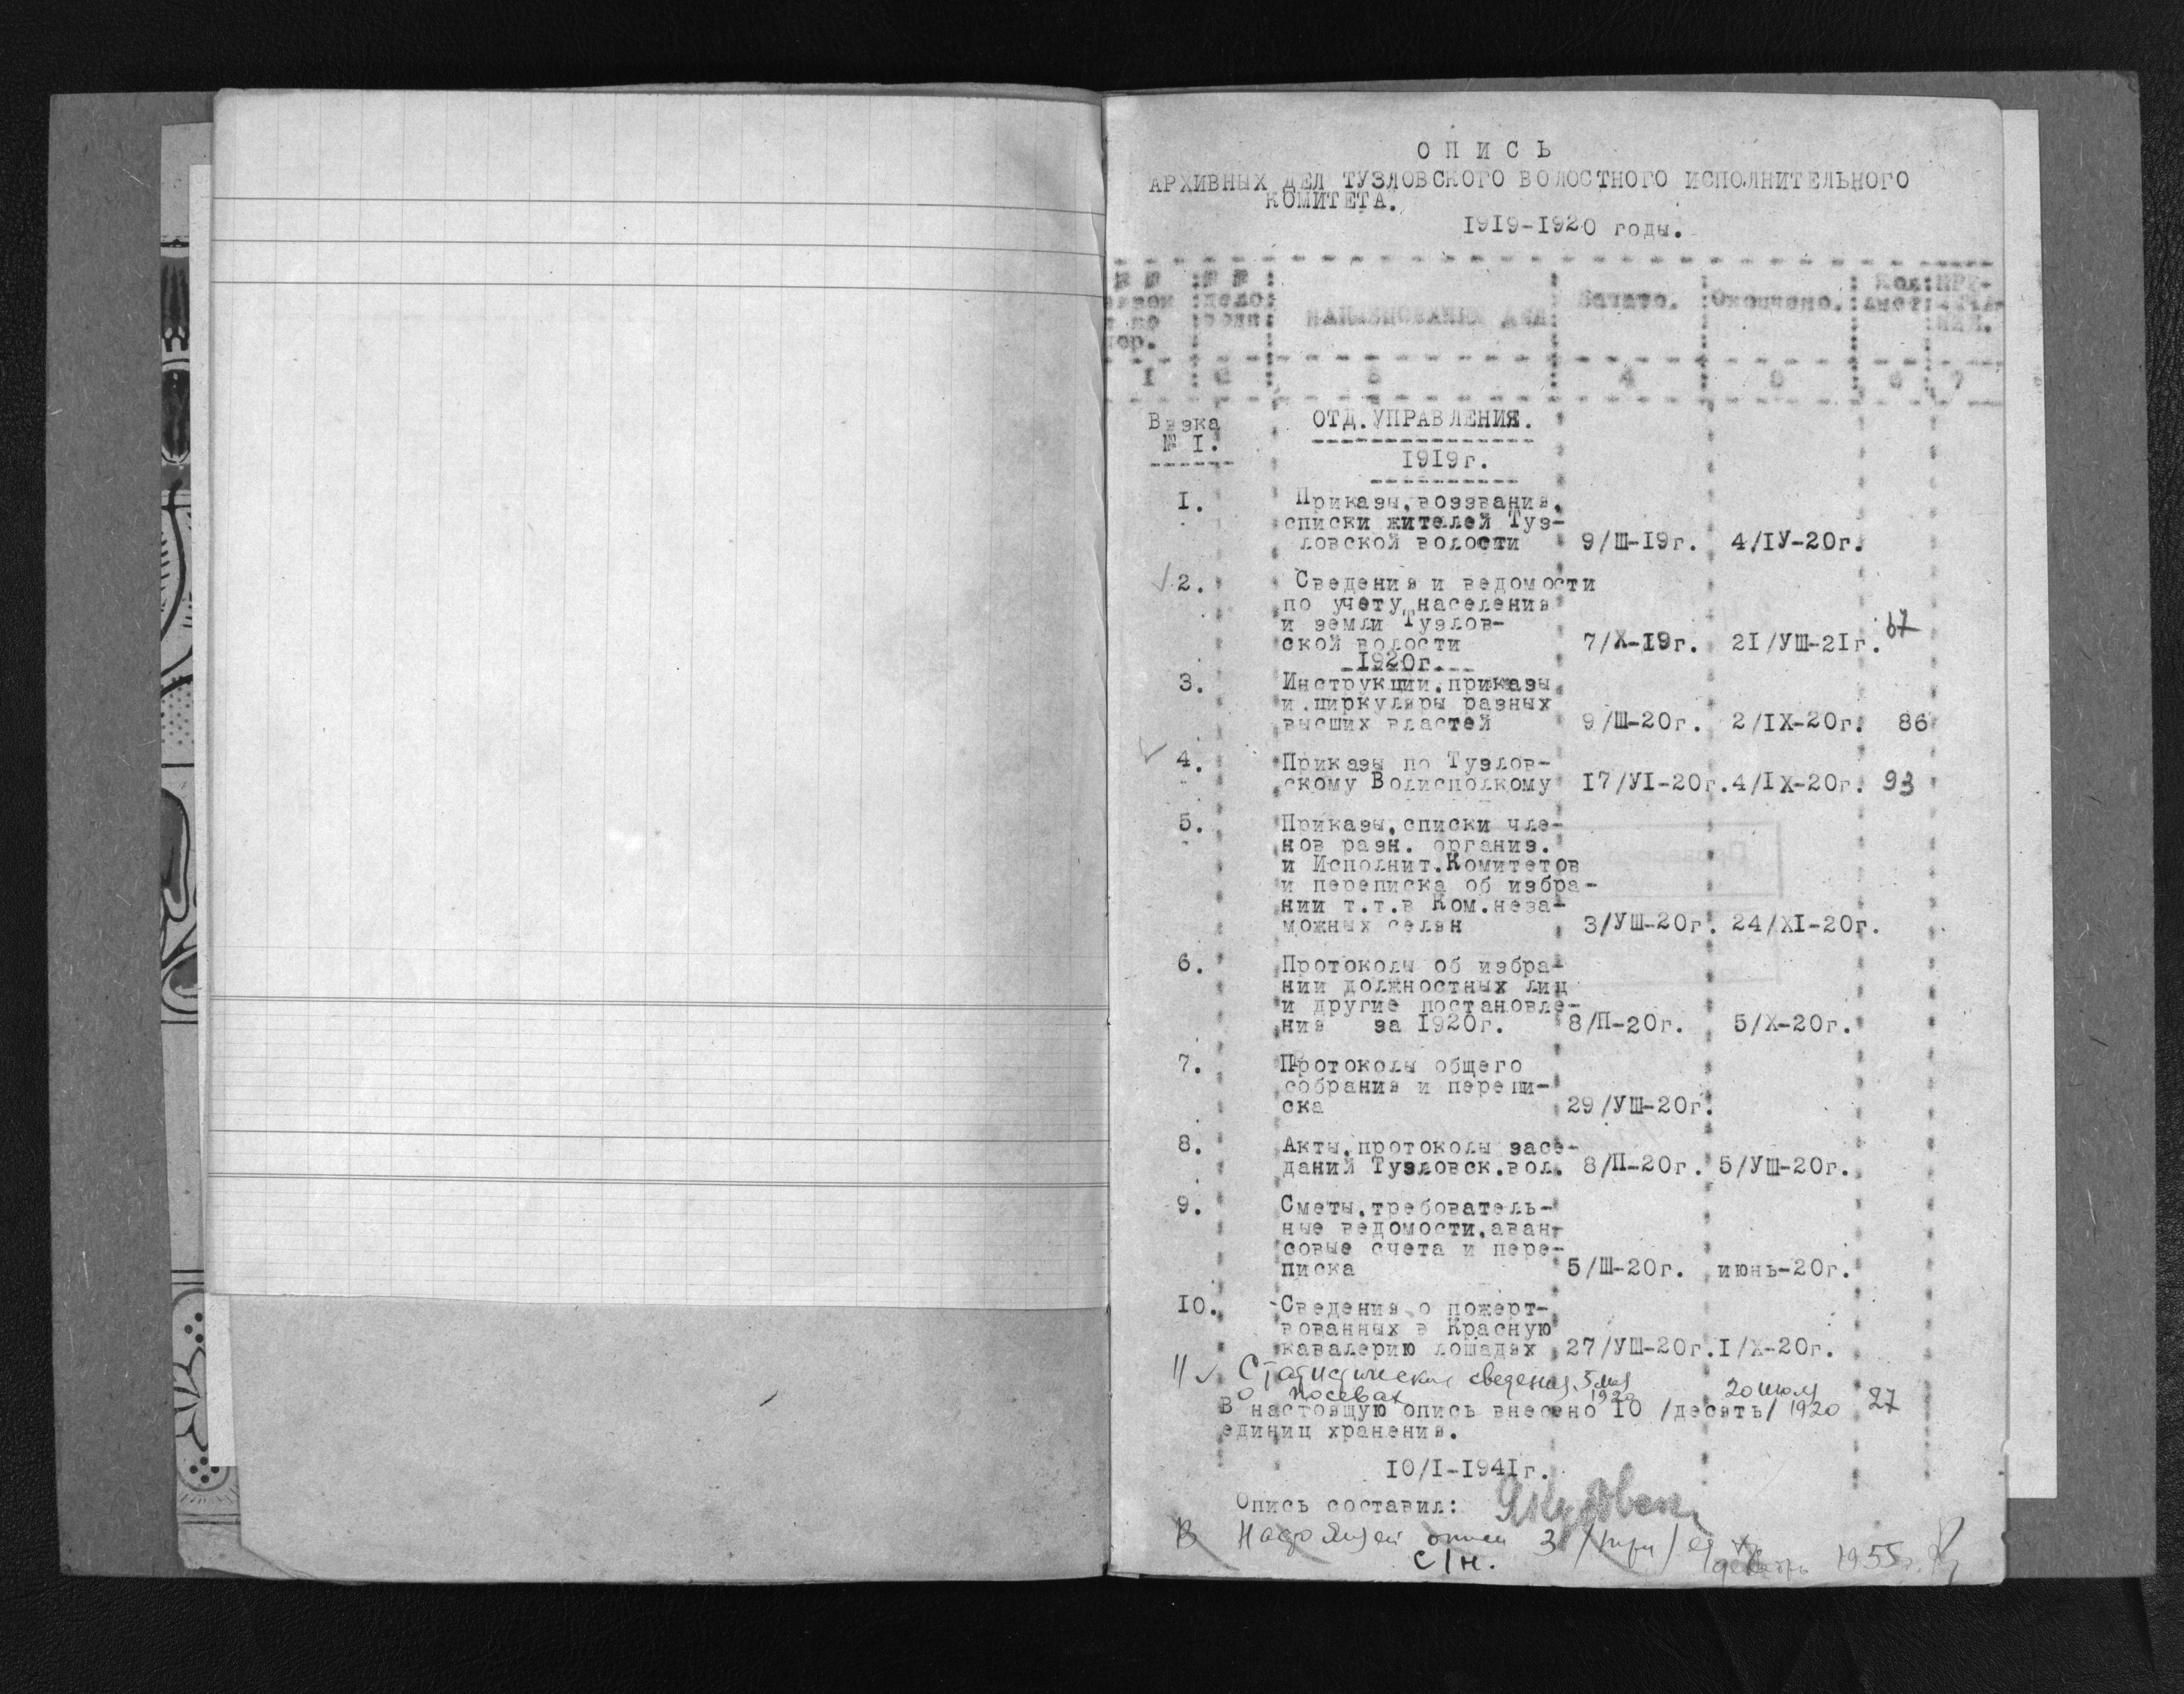 ОПИСЬ
АРХИВНЫХ ДЕЛ ТУЗЛОВСКОГО ВОЛОСТНОГО ИСПОЛНИТЕЛЬНОГО
КОМИТЕТА.
1919-1920 годы.
№ № № № Кол ПРИ-
вязок дело НАИМЕНОВАНИЕ ДЕЛ Начато. Окончено. лист
и по
пор.
1 2 3 4 5 6 7
Вязка ОТД.УПРАВЛЕНИЯ.
№ I.
1919г.
I. Приказы,воззвания,
списки жителей Туз-
ловской волости 9/Ш-19г. 4/IУ-20г.
2. Сведения и ведомости
по учету населения
и земли Тузлов-
ской волости 7/Х-19г. 21/УШ-21г. 67
1920г.
3. Инструкции,приказы
и циркуляры разных
высших властей 9/Ш-20г. 2/IХ-20г. 86
4. Приказы по Тузлов-
скому Волисполкому 17/УI-20г. 4/IХ-20г. 93
5. Приказы,списки чле-
нов разн. организ.
и Исполнит.Комитетов
и переписка об избра-
нии т.т.в Ком.неза-
можных селян 3/УШ-20г. 24/ХI-20г.
6. Протоколы об избра-
нии должностных лиц
и другие постановле-
ния за 1920г. 8/П-20г. 5/Х-20г.
7. Протоколы общего
собрания и перепи-
ска 29/УШ-20г.
8. Акты,протоколы засе-
даний Тузловск.вол. 8/П-20г. 5/УШ-20г.
9. Сметы,требователь-
ные ведомости,аван-
совые счета и пере-
писка 5/Ш-20г. июнь-20г.
10. Сведения о пожерт-
вованных в Красную
кавалерию лошадях 27/УШ-20г. I/Х-20г.
11 Статистические сведения 5 мая
о посевах 1920 20 июля
В настоящую опись внесено 10 /десять/ 1920 27
единиц хранения.
10/I-1941г.
Опись составил:
В Настоящей описи 3 /три/ ед
с/н. 1955г.